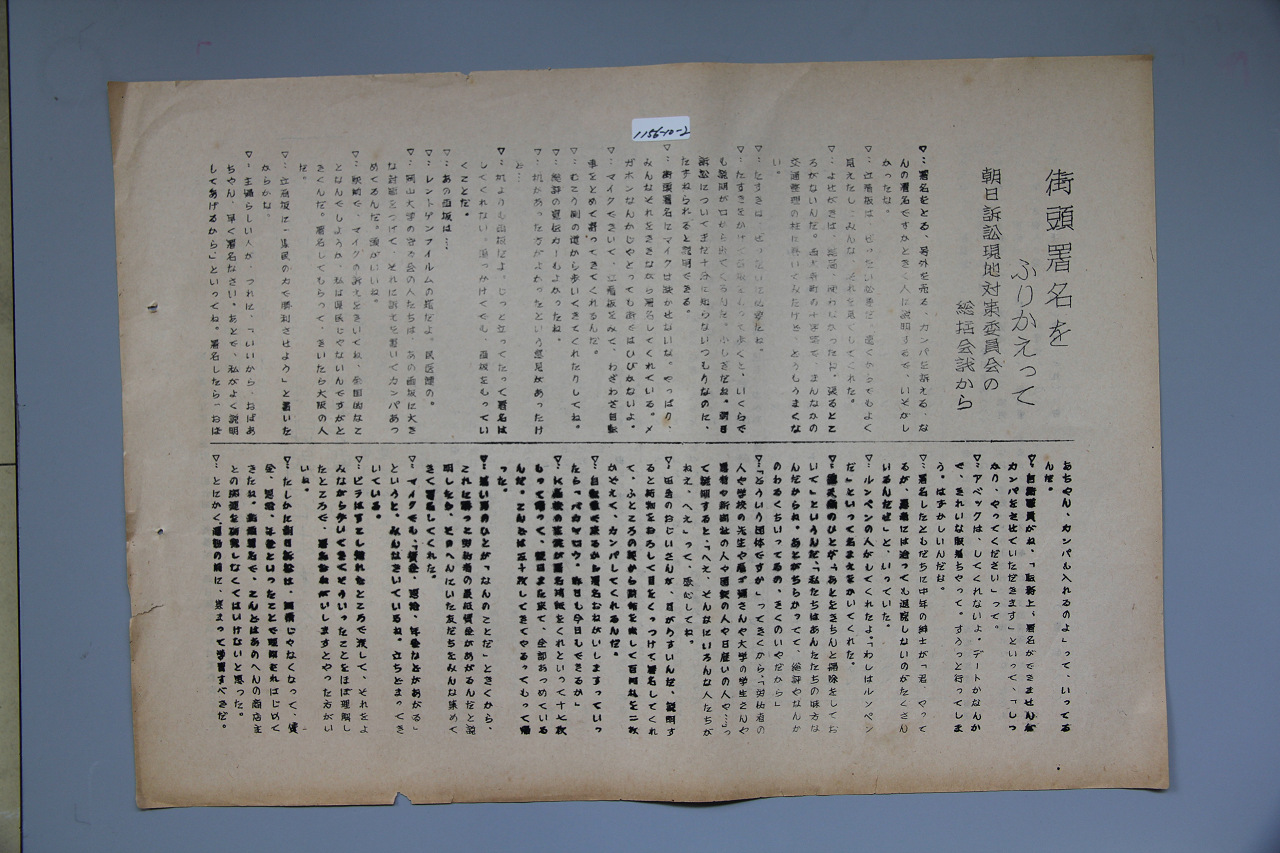 1156-10-2
街頭署名を
ふりかえって
朝日訴訟現地対策委員会の
総括会議から
▽…署名をとる、号外を売る、カンパを訴える、な
んの署名ですかときく人に説明するで、いそがし
かったな。
▽…立看板は、ぜったい必要だ。遠くからでもよく
見えたし、みんな、それを見てしてくれた。
▽…よせがきは、結局、使わなかったね。張るとこ
ろがないんだ。
交通整理の柱に巻いてみたけど、どうもうまくな
い。
▽…たすきは、ぜったいに必要だね。
▽…たすきをかけて画板をもって歩くと、いくらで
も説明が口から出てくるんだ。ふしぎだね。朝日
訴訟についてまだ十分に知らないつもりなのに、
たずねられると説明できる。
▽…街頭署名にマイクは欠かせないな。やっぱり、
みんなそれをききながら署名してくれている。メ
ガホンなんかじゃとっても街をはひびかないよ。
▽…マイクできいて、立看板をみて、わざわざ自転
車をとめて寄ってきてくれるんだ。
▽…むこう側の道から歩いてきてくれたりしてね。
▽…総評の宣伝カーもよかったね。
▽…机があった方がよかったという意見があったけ
ど…
▽…机よりも画板だよ。じっと立ってたって署名は
してくれない。追っかけてでも、画板をもってい
くことだ。
▽…あの画板は…
▽…レントゲンフイルムの箱だよ。民医連の。
▽…岡山大学の守る会の人たちは、あの画板に大き
な封筒をつけて、それに訴えを書いてカンパあつ
めてるんだ。頭がいいね。
▽…駅前で、マイクの訴えをきいてね、全国的なこ
となんでしょうか、私は県民じゃないんですがと
きくんだ。署名してもらって、きいたら大阪の人
だ。
▽…立看板に「県民の力で勝利させよう」と書いた
からかな。
▽…主婦らしい人が、つれに、「いいから、おばあ
ちゃん、早く署名なさい。あとで、私がよく説明
してあげるから」といってね。署名したら「おば
あちゃん、カンパも入れるのよ」って、いってる
んだ。
▽…自衛隊員がね、「職務上、署名ができませんが
カンパをさせていただきます」といって、「しっ
かり、やってください」って。
▽…アベックは、してくれないよ。デートかなんか
で、きれいな服着ちゃって。すうっと行ってしま
う。はずかしいんだな。
▽…署名したともだちに中年の紳士が「君、やって
るが、患者には治っても退院しないのがたくさん
いるんだぜ」と、いっていた。
▽…ルンペンの人がしてくれたよ。「わしはルンペン
だ」といって名まえをかいてくれた。
いて」というんだ。「私たちはあんたたちの味方な
んだからね。あとがちらかってて、総評やなんか
のわるくちいってるの、きくのいやだから」
▽…「どういう団体ですか」ってきくから、「労働者の
人や学校の先生や奥さん達さんや大学の学生さんや
患者や新聞社の人や国鉄の人や日雇いの人や…」っ
て説明すると「へえ、そんなにいろんな人たちが
ねえ、へえ」って、感心してね。
▽…田舎のおじいさんが、目がうすいんだ、説明す
ると荷物をおろして目をくっつけて署名してくれ
て、ふところの奥から財布を出して百円札を二枚
かぞえて、カンパしてくれるんだ。
▽…自転車で来るから署名おねがいしますっていっ
たら「バカヤロウ、昨日も今日もできるか」
もって帰って、翌日また来て、全部あつめている
んだ。こんどは五十枚してきてやるってもって帰
った。
▽…若い男のひとが「なんのことだ」ときくから、
これに勝つと労働者の最低賃金があがるんだと説
明したら、そのへんにいた友だちをみんな集めて
きて署名してくれた。
▽…マイクでも「賃金、恩給、年金などがあがる」
というと、みんなきいているね。立ちどまってき
いている。
▽…ビラはすこし離れたところで渡して、それをよ
みながら歩いてきてそういったことをほぼ理解し
たところで、署名おねがいしますとやった方がい
いね。
▽…たしかに朝日訴訟は、同情じゃなくなって、賃
金、恩給、年金といったことで理解をされはじめて
きたね。街頭署名で、こんどはあのへんの商店主
との関連を研究しなくてはいけないと思った。
▽…とにかく運動の前に、集まって学習すべきだ。